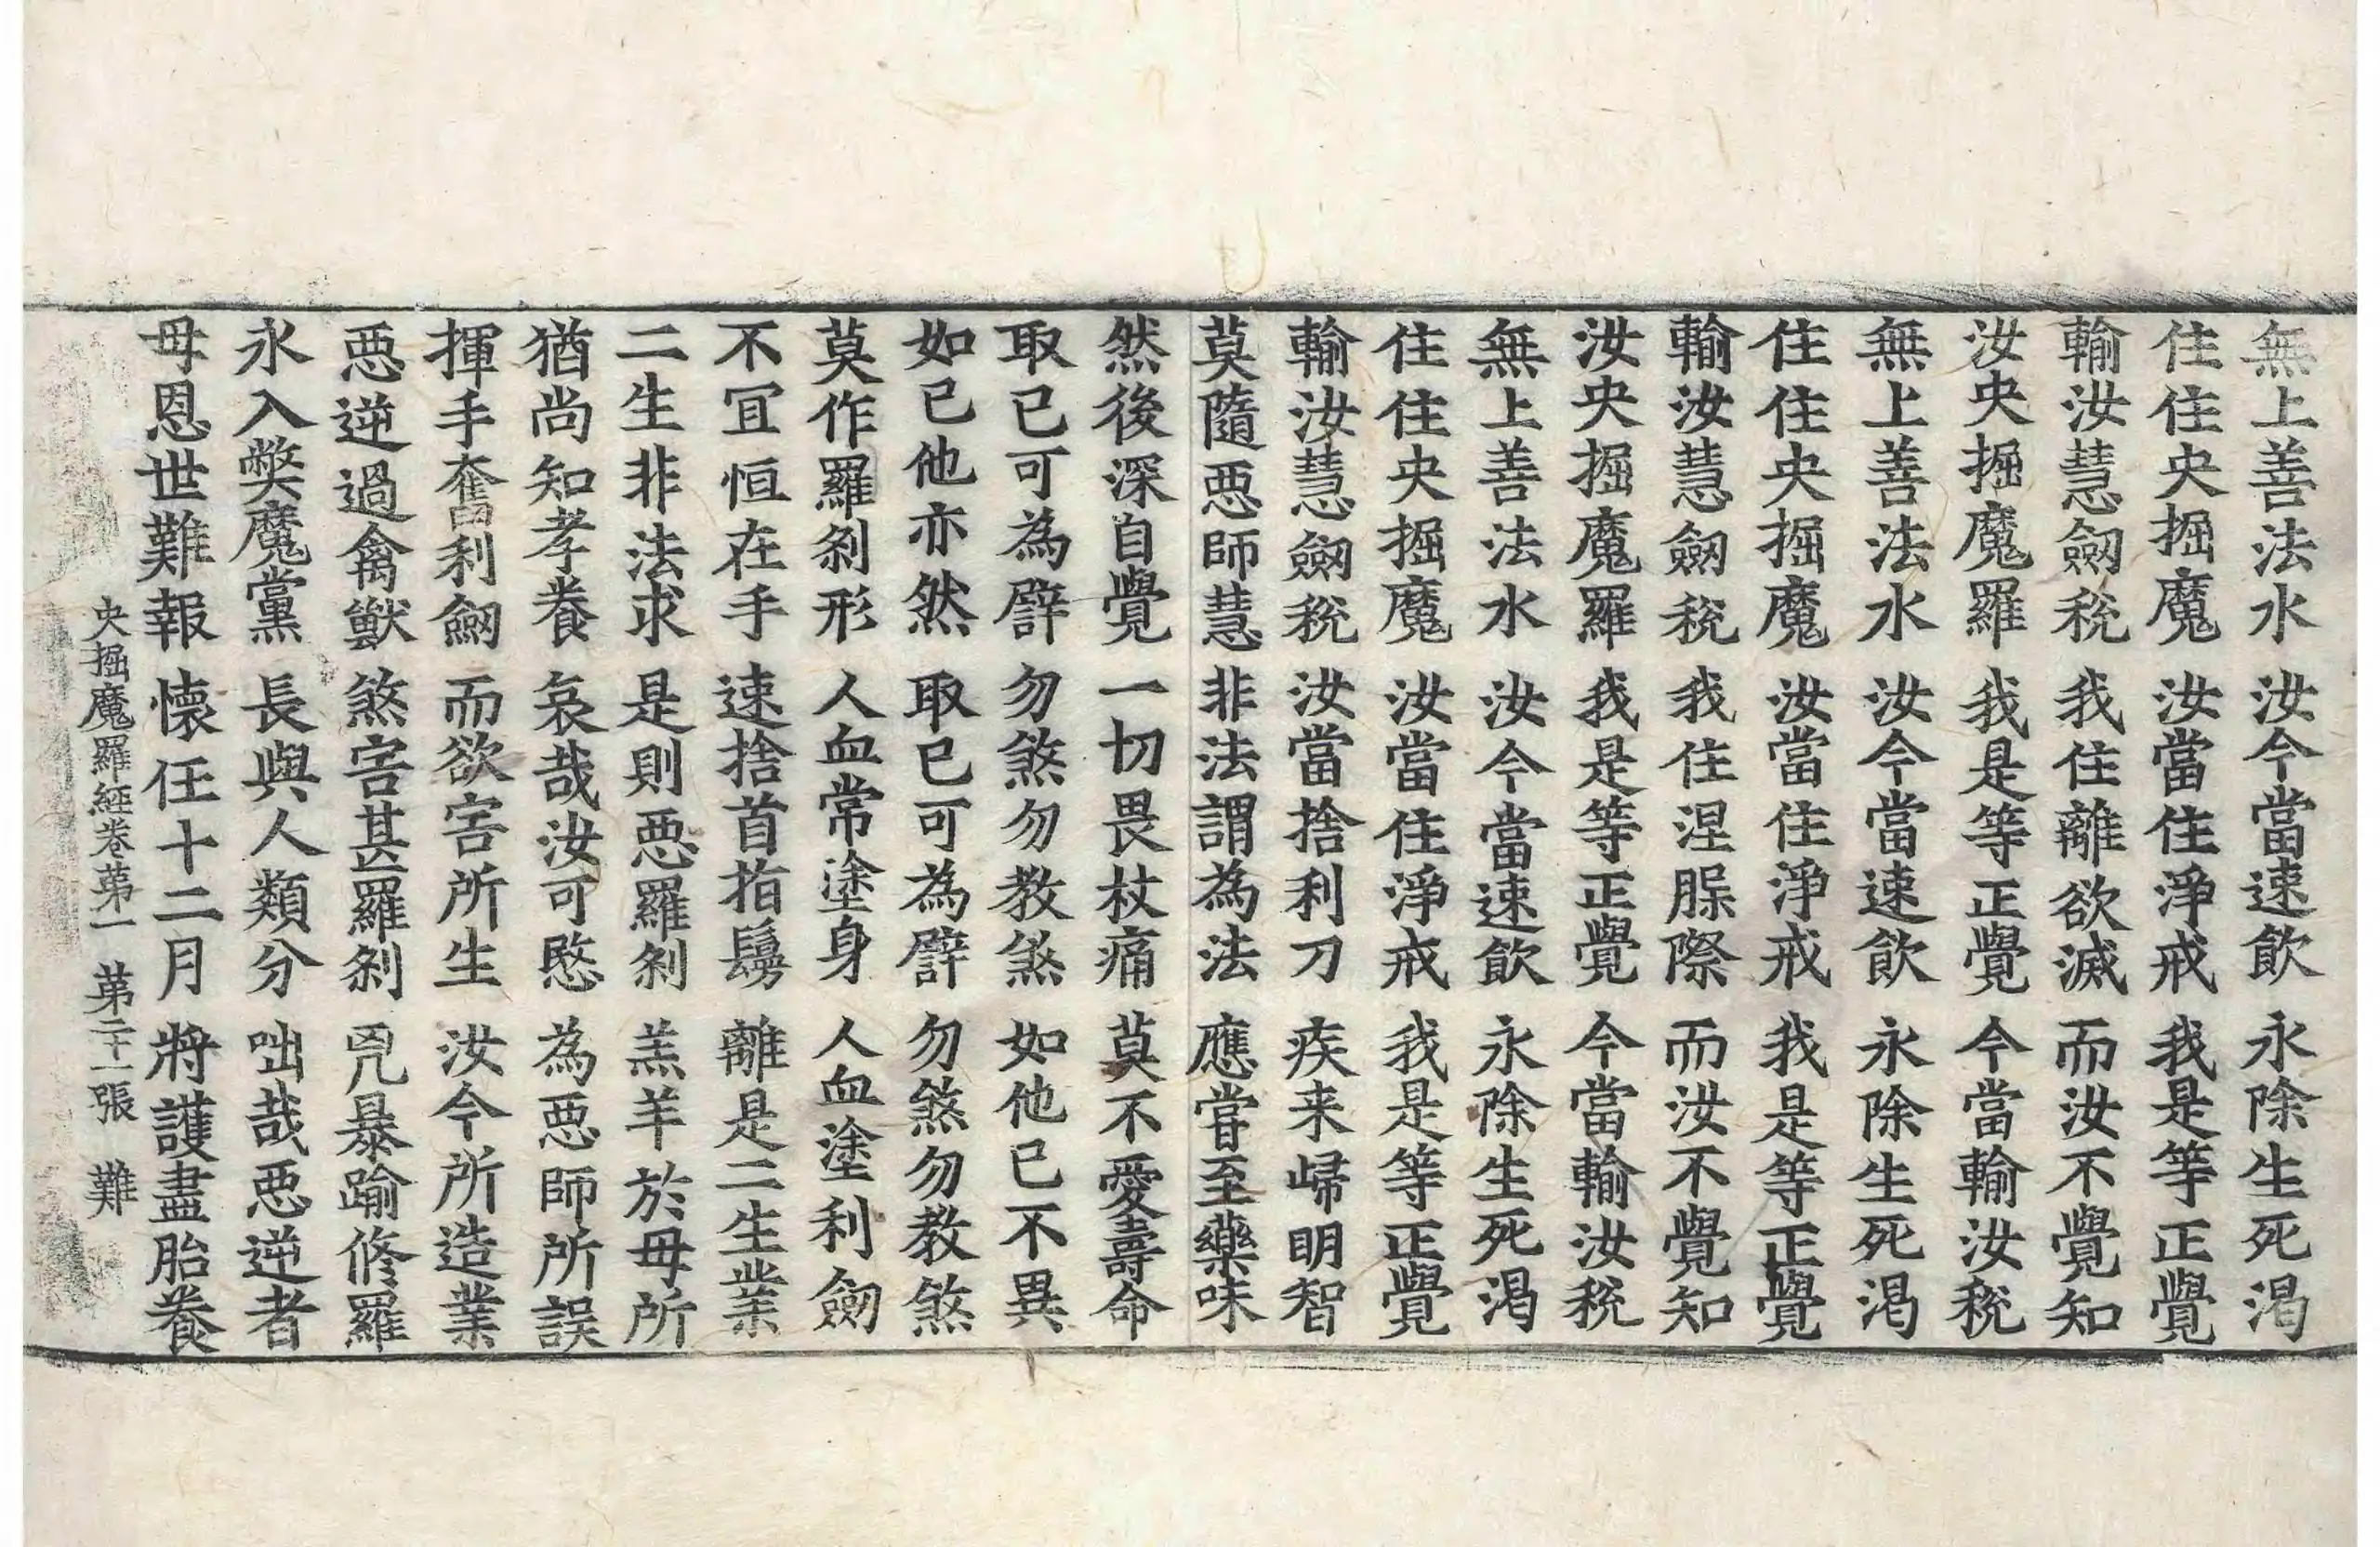 無上善法水 汝今當速飲 永除生死渇
住住央掘魔 汝當住淨戒 我是等正覺
輸汝慧劒稅 我住離欲滅 而汝不覺知
汝央掘魔羅 我是等正覺 今當輸汝稅
無上善法水 汝今當速飲 永除生死渇
住住央掘魔 汝當住淨戒 我是等正覺
輸汝慧劒稅 我住涅𣵀際 而汝不覺知
汝央掘魔羅 我是等正覺 今當輸汝稅
無上善法水 汝今當速飲 永除生死渇
住住央掘魔 汝當住淨戒 我是等正覺
輸汝慧劒稅 汝當捨利刀 疾来歸明智
莫隨惡師慧 非法謂為法 應甞至藥味
然後深自覺 一切畏杖痛 莫不愛壽命
取已可為譬 勿煞勿教煞 如他已不異
如已他亦然 取已可為譬 勿煞勿教煞
莫作羅刹形 人血常塗身 人血塗利劒
不冝恒在手 速捨首指鬘 離是二生業
二生非法求 是則惡羅刹 羔羊於母所
猶尚知孝養 哀哉汝可愍 為惡師所誤
揮手奮利劒 而欲害所生 汝今所造業
惡逆過禽獸 煞害甚羅刹 兇暴踰修羅
永入弊魔黨 長與人類分 咄哉惡逆者
母恩世難報 懷任十二月 將護盡胎養
央掘魔羅經卷第一 第二十一張 難